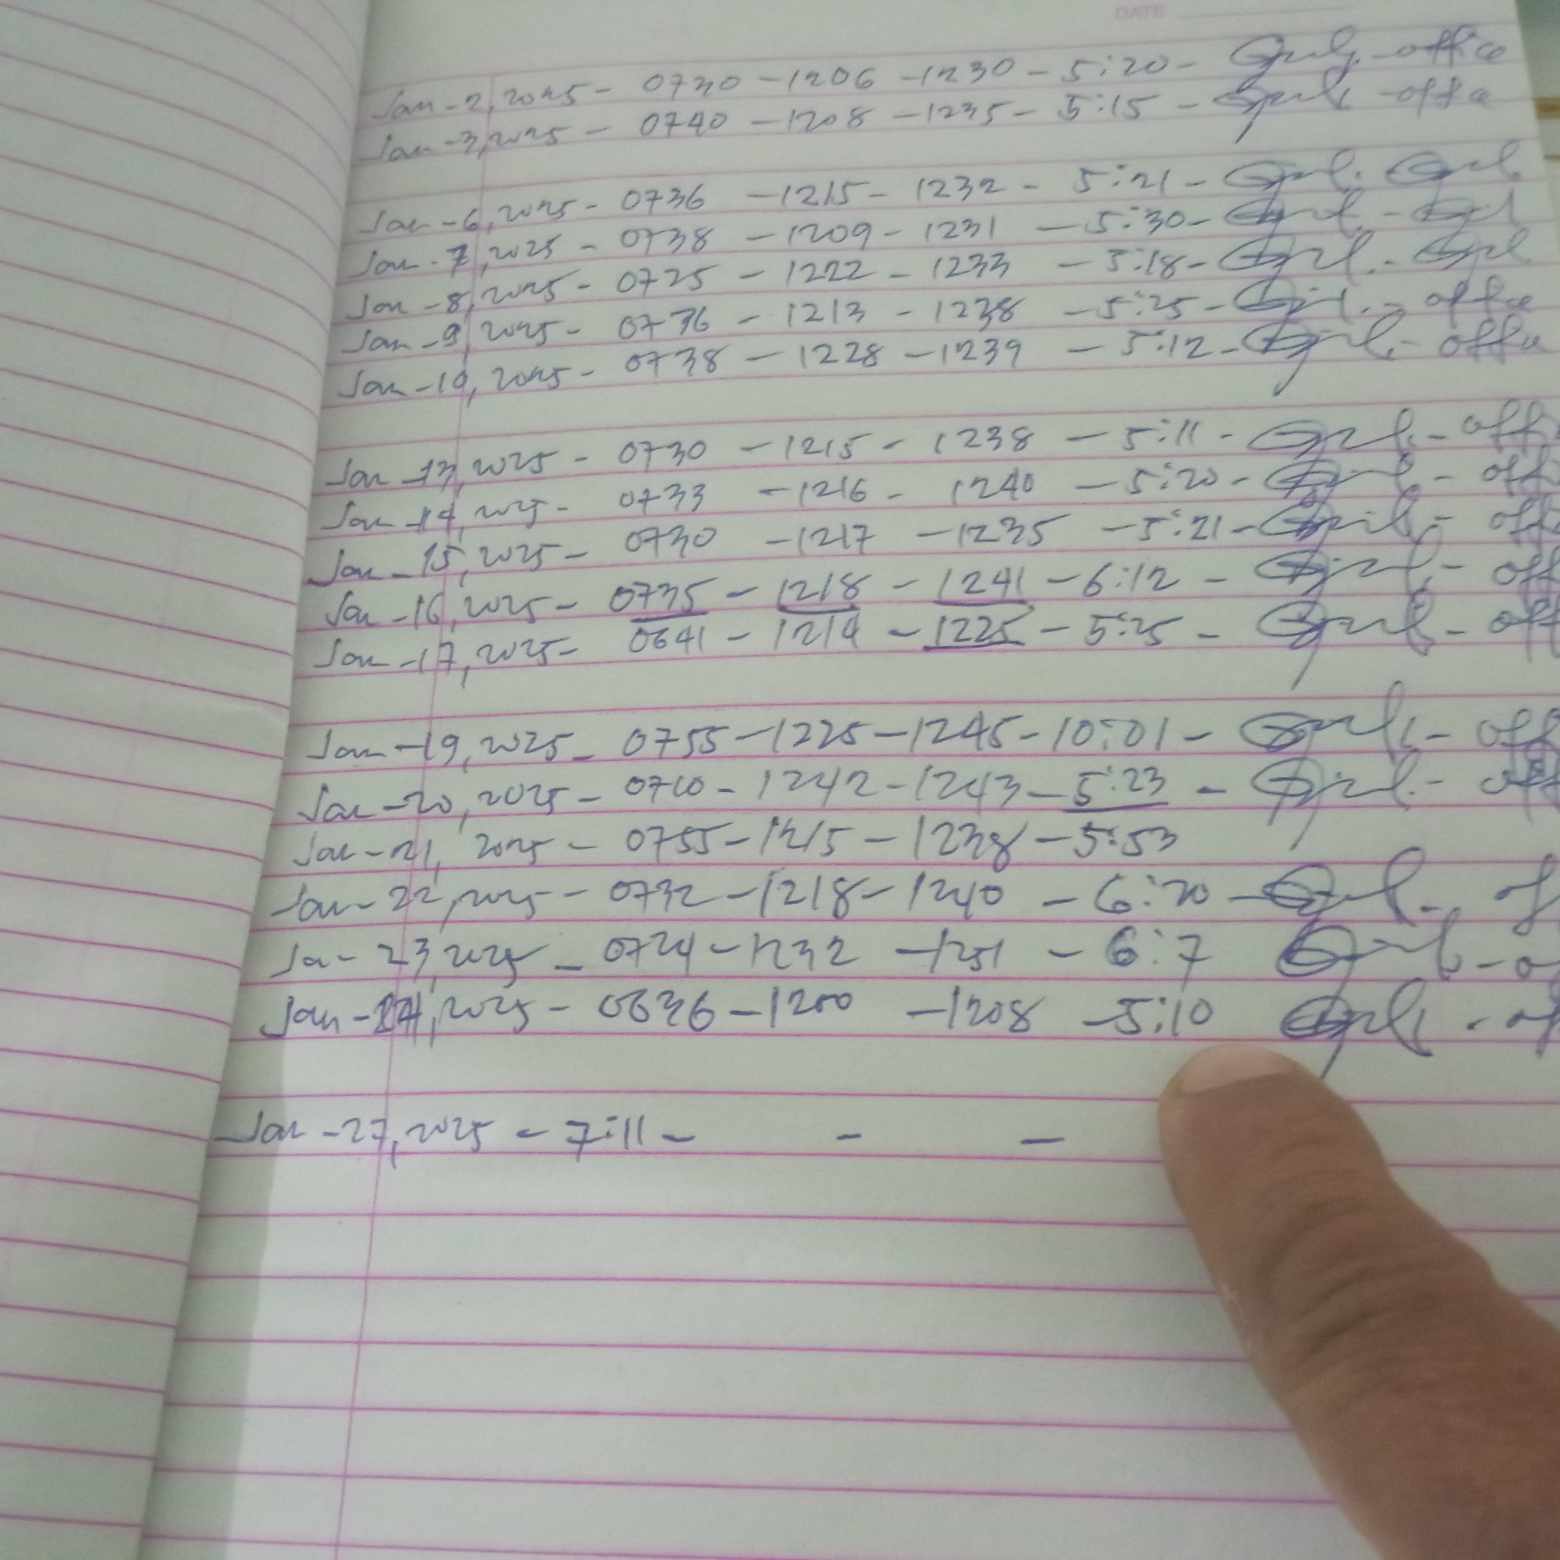 DATE
Jan-2, 2025 - 0730 - 1206 - 1230 - 5:20 - office
Jan-3, 2025 - 0740 - 1208 - 1235 - 5:15 - offce
Jan-6, 2025 - 0736 - 1215 - 1232 - 5:21 -
Jan-7, 2025 - 0738 - 1209 - 1231 - 5:30 -
Jan-8, 2025 - 0725 - 1222 - 1233 - 5:18 -
Jan-9, 2025 - 0736 - 1213 - 1238 - 5:25 - - offce
Jan-10, 2025 - 0738 - 1228 - 1239 - 5:12 - - offce
Jan-13, 2025 - 0730 - 1215 - 1238 - 5:11 - - off
Jan-14, 2025 - 0733 - 1216 - 1240 - 5:20 - - off
Jan-15, 2025 - 0730 - 1217 - 1235 - 5:21 - - off
Jan-16, 2025 - 0735 - 1218 - 1241 - 6:12 - - off
Jan-17, 2025 - 0641 - 1214 - 1225 - 5:25 - - off
Jan-19, 2025 - 0755 - 1225 - 1245 - 10:01 - - off
Jan-20, 2025 - 0710 - 1242 - 1243 - 5:23 - - off
Jan-21, 2025 - 0755 - 1215 - 1238 - 5:53
Jan-22, 2025 - 0732 - 1218 - 1240 - 6:20 - - of
Jan-23, 2025 - 0724 - 1232 - 1251 - 6:7 - o
Jan-24, 2025 - 0636 - 1200 - 1208 - 5:10 - of
Jan-27, 2025 - 7:11 - - -